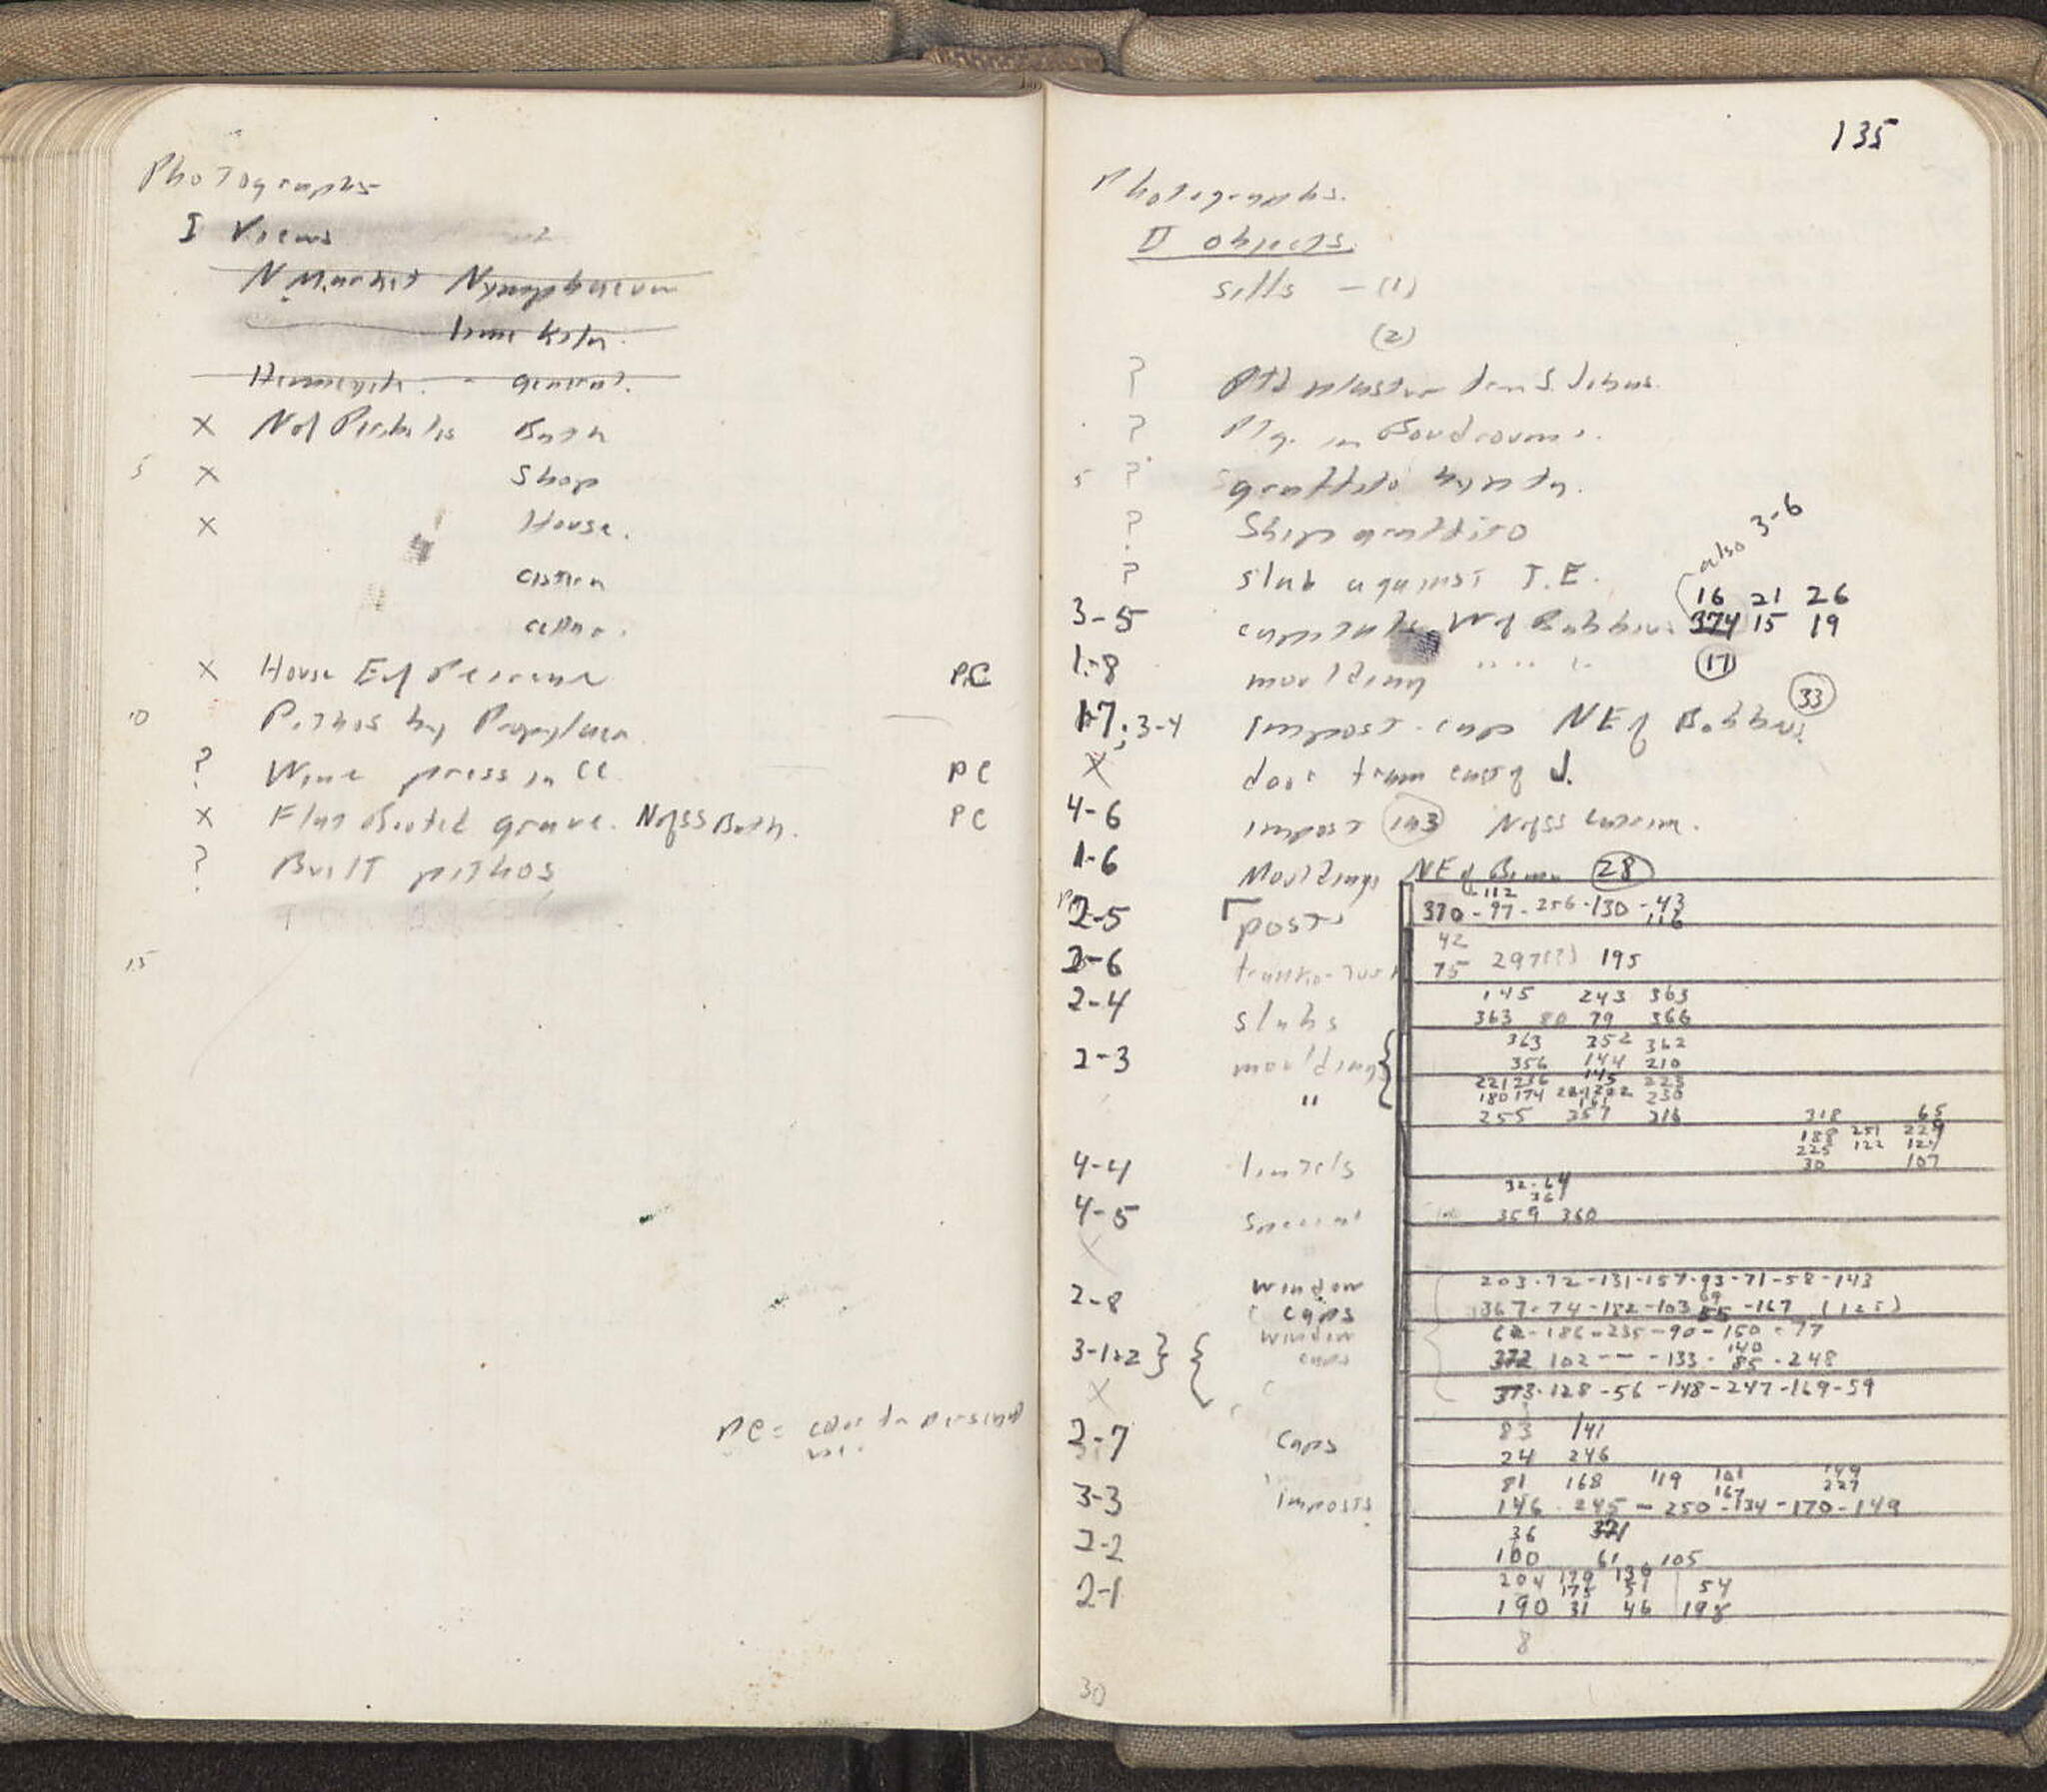 Photographs
I Views
N. Market Nymphaeum
lime kiln.
Hemicycle. - general.
X N of Peribolos Bath
5 X Shop
X House.
cistern
X House E of Peirene PC
10 Pithos by Propylaea
? Wine press in CC PC
X Flat Roofed grave. N of SS Bath. PC
? Built pithos
15
PC = color for personal use.
135
Photographs.
II objects.
sills - (1)
(2)
? Ptd plaster from S.
? Ptg. in Boudroumi.
5 ? graffito
? Ship graffito
? slab against T.E.
also 3-6
16 21 26
3-5 capitals W of Babbius 374 15 19
1-8 moulding " " " " 17
1-7; 3-4 Impost-cap NE of Babbius 33
X door from east of J.
4-6 impost 103 N of SS
1-6 Mouldings NE of 28
112
2-5 posts 370 - 97 - 256 - 130 - 43
116
42
2-6 75 297(?) 195
145 243 363
2-4 slabs 363 80 79 366
363 352 362
2-3 moulding 356 144 210
145
221 236 225
" 180 174 230
161
255 257 316 318 65
188 251 229
225 122 127
4-4 lintels 30 107
32 - 64
36
4-5 special 359 360
X
window 203 - 72 - 131 - 157 - 93 - 71 - 58 - 143
69
2-8 caps 367 - 74 - 182 - 103 55 - 167 (125)
window 62 - 186 - 235 - 90 - 150 - 77
140
3-1+2 caps 372 102 - - - 133 - 85 - 248
X 373 - 128 - 56 - 148 - 247 - 169 - 59
83 141
2-7 caps 24 246
81 168 119 101 149
167 227
3-3 imposts 146 - 245 - 250 - 134 - 170 - 149
36 371
2-2 100 61 105
204 179 136 54
175 51
2-1 190 31 46 198
8
30